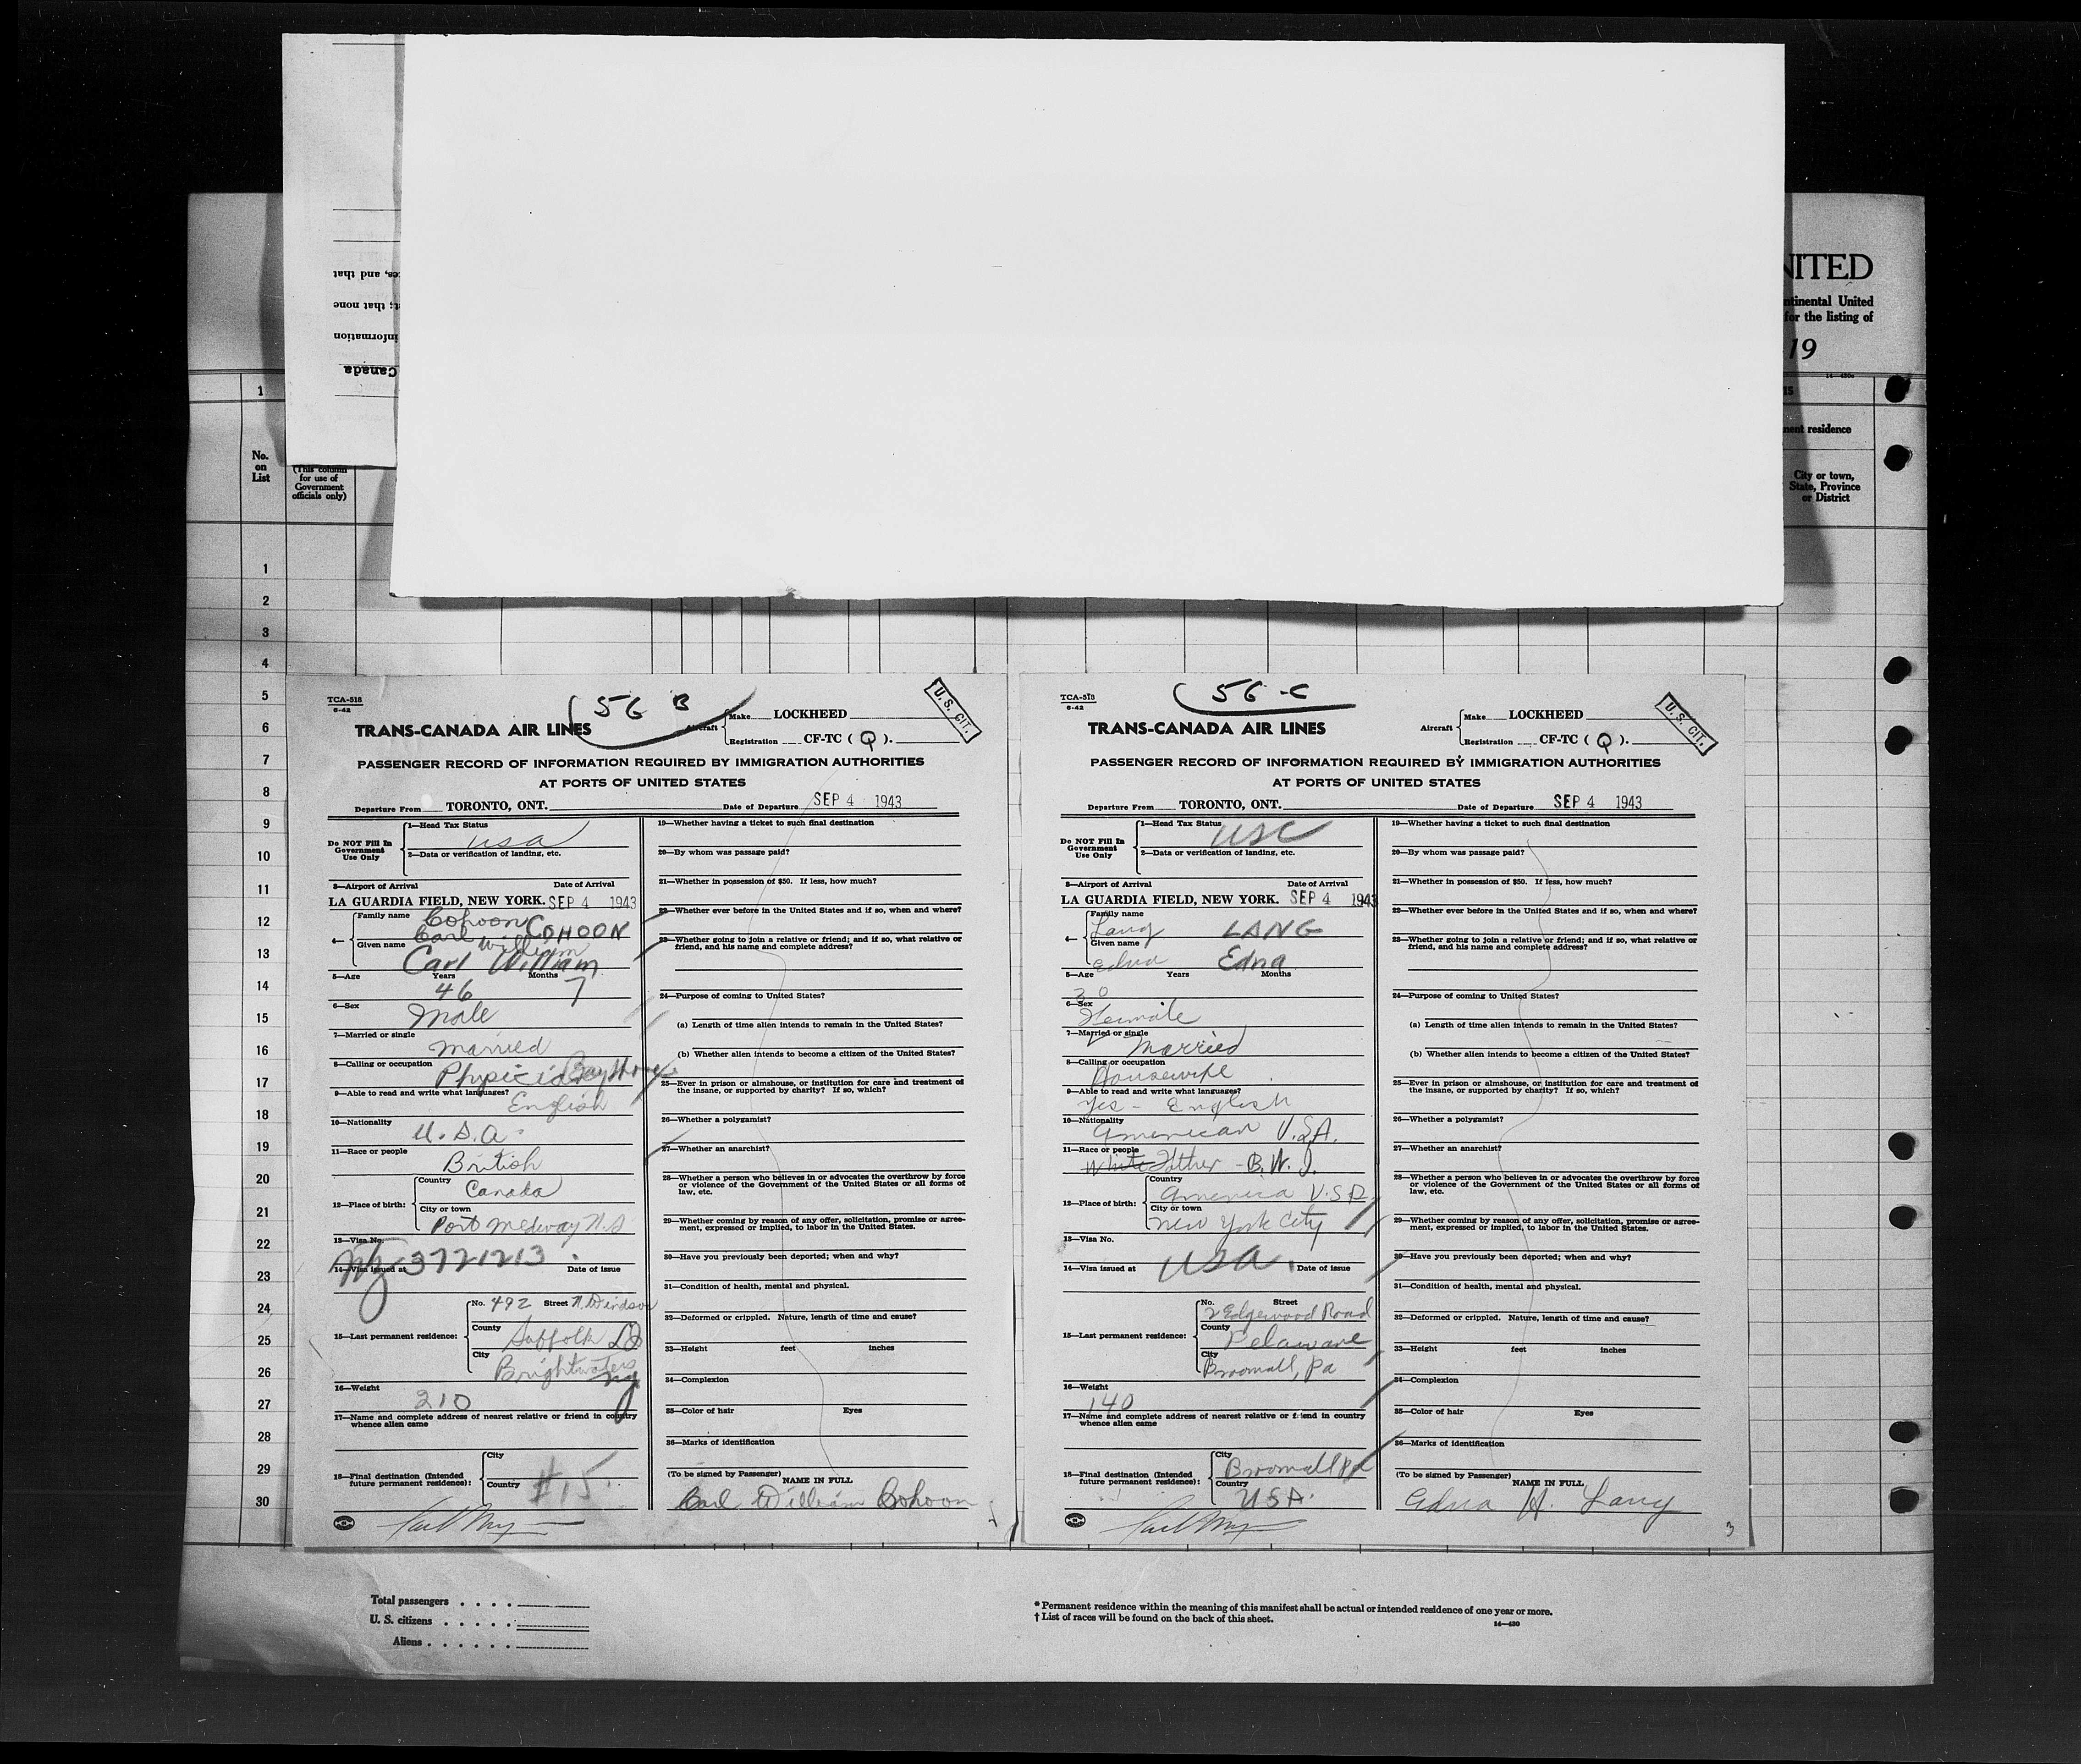 NITED
ntinental United
for the listing of
19
nent residence
City or town,
State, Province
or District
ces, and that
t; that none
information
Canada
1
No.
on
List
(This column
for use of
Government
officials only)
1
2
3
4
5
6
7
8
9
10
11
12
13
14
15
16
17
18
19
20
21
22
23
24
25
26
27
28
29
30
TCA-518
6-42
56 B
U. S. CIT.
TRANS-CANADA AIR LINES
Aircraft
Make LOCKHEED
Registration CF-TC ( Q ).
PASSENGER RECORD OF INFORMATION REQUIRED BY IMMIGRATION AUTHORITIES
AT PORTS OF UNITED STATES
Departure From TORONTO, ONT. Date of Departure SEP 4 1943
Do NOT Fill In
Government
Use Only
1—Head Tax Status
usa
2—Data or verification of landing, etc.
3—Airport of Arrival Date of Arrival
LA GUARDIA FIELD, NEW YORK. SEP 4 1943
4—
Family name Cohoon COHOON
Carl William
Given name
Carl William
5—Age Years Months
46 7
6—Sex
Male
7—Married or single
Married
8—Calling or occupation
Physician
9—Able to read and write what languages?
English
10—Nationality
U.S.A.
11—Race or people
British
12—Place of birth:
Country
Canada
City or town
Port Medway N.S
13—Visa No.
Ny 3721213
14—Visa issued at Date of issue
15—Last permanent residence:
No. 492 Street N. Windsor
County
Suffolk Co
City
Brightwaters
NY
16—Weight
210
17—Name and complete address of nearest relative or friend in country
whence alien came
18—Final destination (Intended
future permanent residence):
City
Country
#15.
19—Whether having a ticket to such final destination
20—By whom was passage paid?
21—Whether in possession of $50. If less, how much?
22—Whether ever before in the United States and if so, when and where?
23—Whether going to join a relative or friend; and if so, what relative or
friend, and his name and complete address?
24—Purpose of coming to United States?
(a) Length of time alien intends to remain in the United States?
(b) Whether alien intends to become a citizen of the United States?
25—Ever in prison or almshouse, or institution for care and treatment of
the insane, or supported by charity? If so, which?
26—Whether a polygamist?
27—Whether an anarchist?
28—Whether a person who believes in or advocates the overthrow by force
or violence of the Government of the United States or all forms of
law, etc.
29—Whether coming by reason of any offer, solicitation, promise or agree-
ment, expressed or implied, to labor in the United States.
30—Have you previously been deported; when and why?
31—Condition of health, mental and physical.
32—Deformed or crippled. Nature, length of time and cause?
33—Height feet inches
34—Complexion
35—Color of hair Eyes
36—Marks of identification
(To be signed by Passenger)
NAME IN FULL
Carl William Cohoon
TCA-518
6-42
56 -C
U. S. CIT.
TRANS-CANADA AIR LINES
Aircraft
Make LOCKHEED
Registration CF-TC ( Q ).
PASSENGER RECORD OF INFORMATION REQUIRED BY IMMIGRATION AUTHORITIES
AT PORTS OF UNITED STATES
Departure From TORONTO, ONT. Date of Departure SEP 4 1943
Do NOT Fill In
Government
Use Only
1—Head Tax Status
USC
2—Data or verification of landing, etc.
3—Airport of Arrival Date of Arrival
LA GUARDIA FIELD, NEW YORK. SEP 4 1943
4—
Family name
Lang LANG
Given name
Edna Edna
5—Age Years Months
30
6—Sex
Female
7—Married or single
Married
8—Calling or occupation
Housewife
9—Able to read and write what languages?
Yes - English
10—Nationality
American U.S.A.
11—Race or people
White Father - B.W.I.
12—Place of birth:
Country
America U.S.A
City or town
New York City
13—Visa No.
14—Visa issued at USA. Date of issue
15—Last permanent residence:
No. Street
2 Edgewood Road
County
Delaware
City
Broomall, Pa
16—Weight
140
17—Name and complete address of nearest relative or friend in country
whence alien came
18—Final destination (Intended
future permanent residence):
City
Broomall Pa
Country
USA.
19—Whether having a ticket to such final destination
20—By whom was passage paid?
21—Whether in possession of $50. If less, how much?
22—Whether ever before in the United States and if so, when and where?
23—Whether going to join a relative or friend; and if so, what relative or
friend, and his name and complete address?
24—Purpose of coming to United States?
(a) Length of time alien intends to remain in the United States?
(b) Whether alien intends to become a citizen of the United States?
25—Ever in prison or almshouse, or institution for care and treatment of
the insane, or supported by charity? If so, which?
26—Whether a polygamist?
27—Whether an anarchist?
28—Whether a person who believes in or advocates the overthrow by force
or violence of the Government of the United States or all forms of
law, etc.
29—Whether coming by reason of any offer, solicitation, promise or agree-
ment, expressed or implied, to labor in the United States.
30—Have you previously been deported; when and why?
31—Condition of health, mental and physical.
32—Deformed or crippled. Nature, length of time and cause?
33—Height feet inches
34—Complexion
35—Color of hair Eyes
36—Marks of identification
(To be signed by Passenger)
NAME IN FULL
Edna H. Lang
3
Total passengers
U. S. citizens
Aliens
* Permanent residence within the meaning of this manifest shall be actual or intended residence of one year or more.
† List of races will be found on the back of this sheet.
14—430